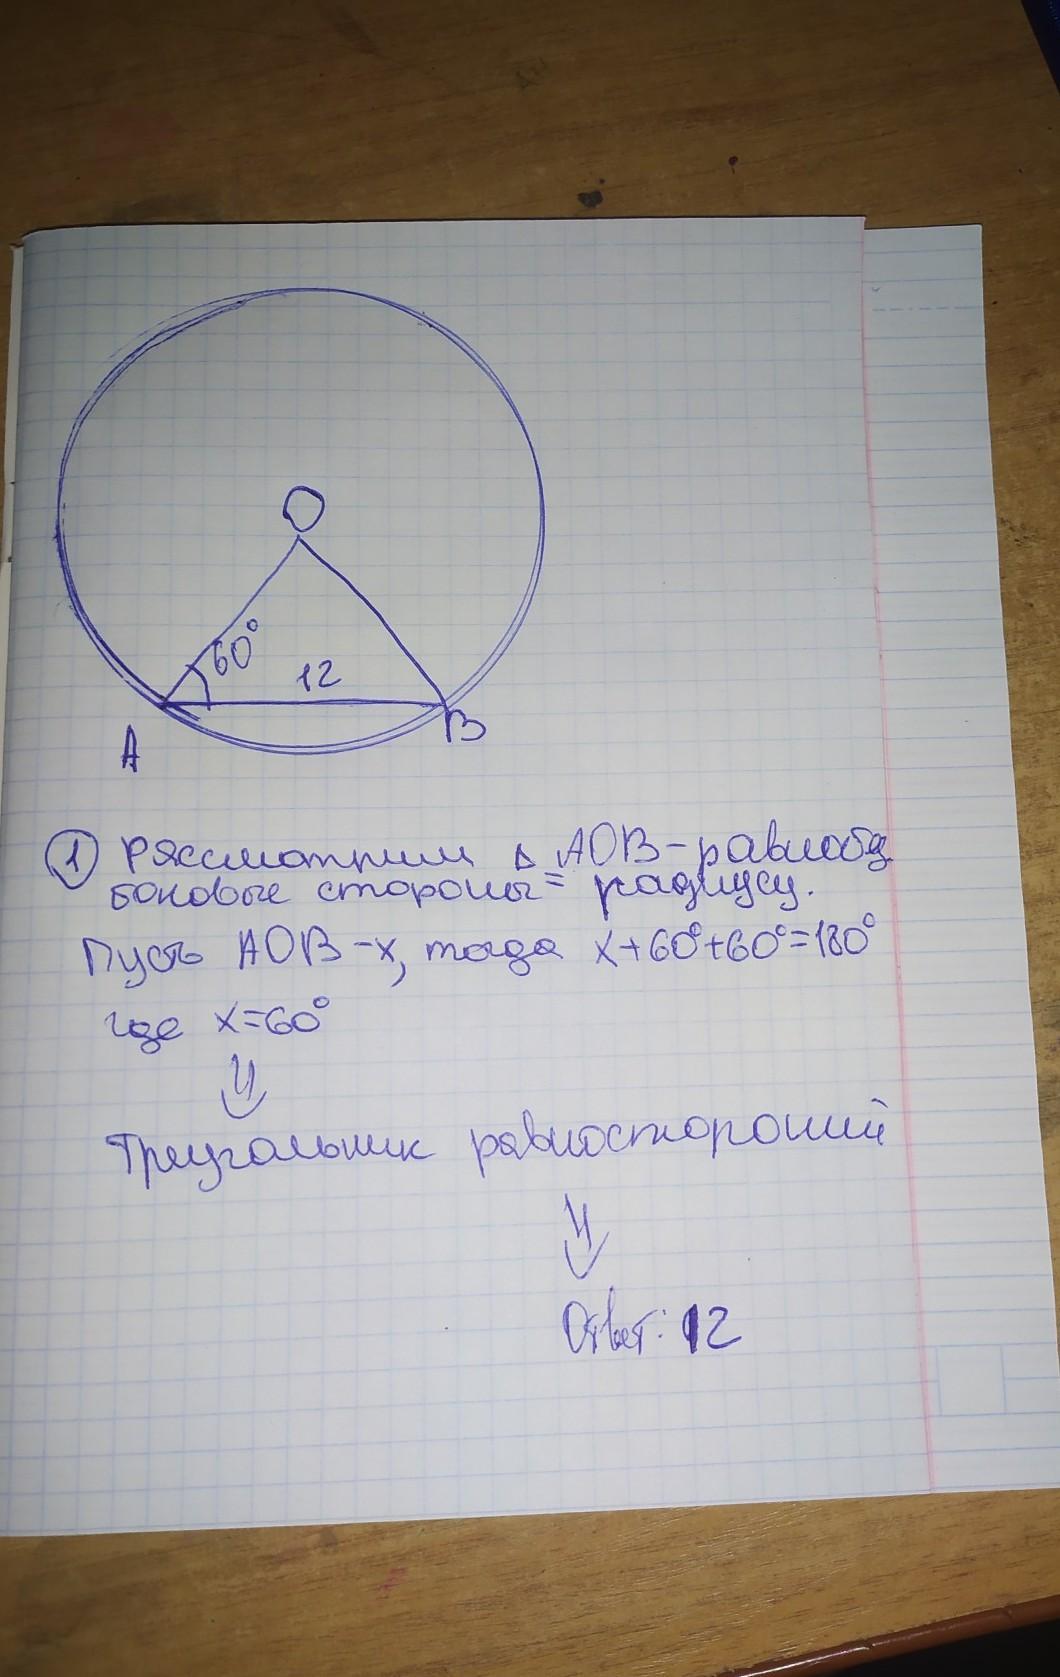 O
60°
12
A
B
1 Рассмотрим △ AOB-равнобед
боковые стороны = радиусу.
Пусть AOB-x, тогда x+60°+60°=180°
где x=60°
⇓
Треугольник равностороний
⇓
Ответ: 12